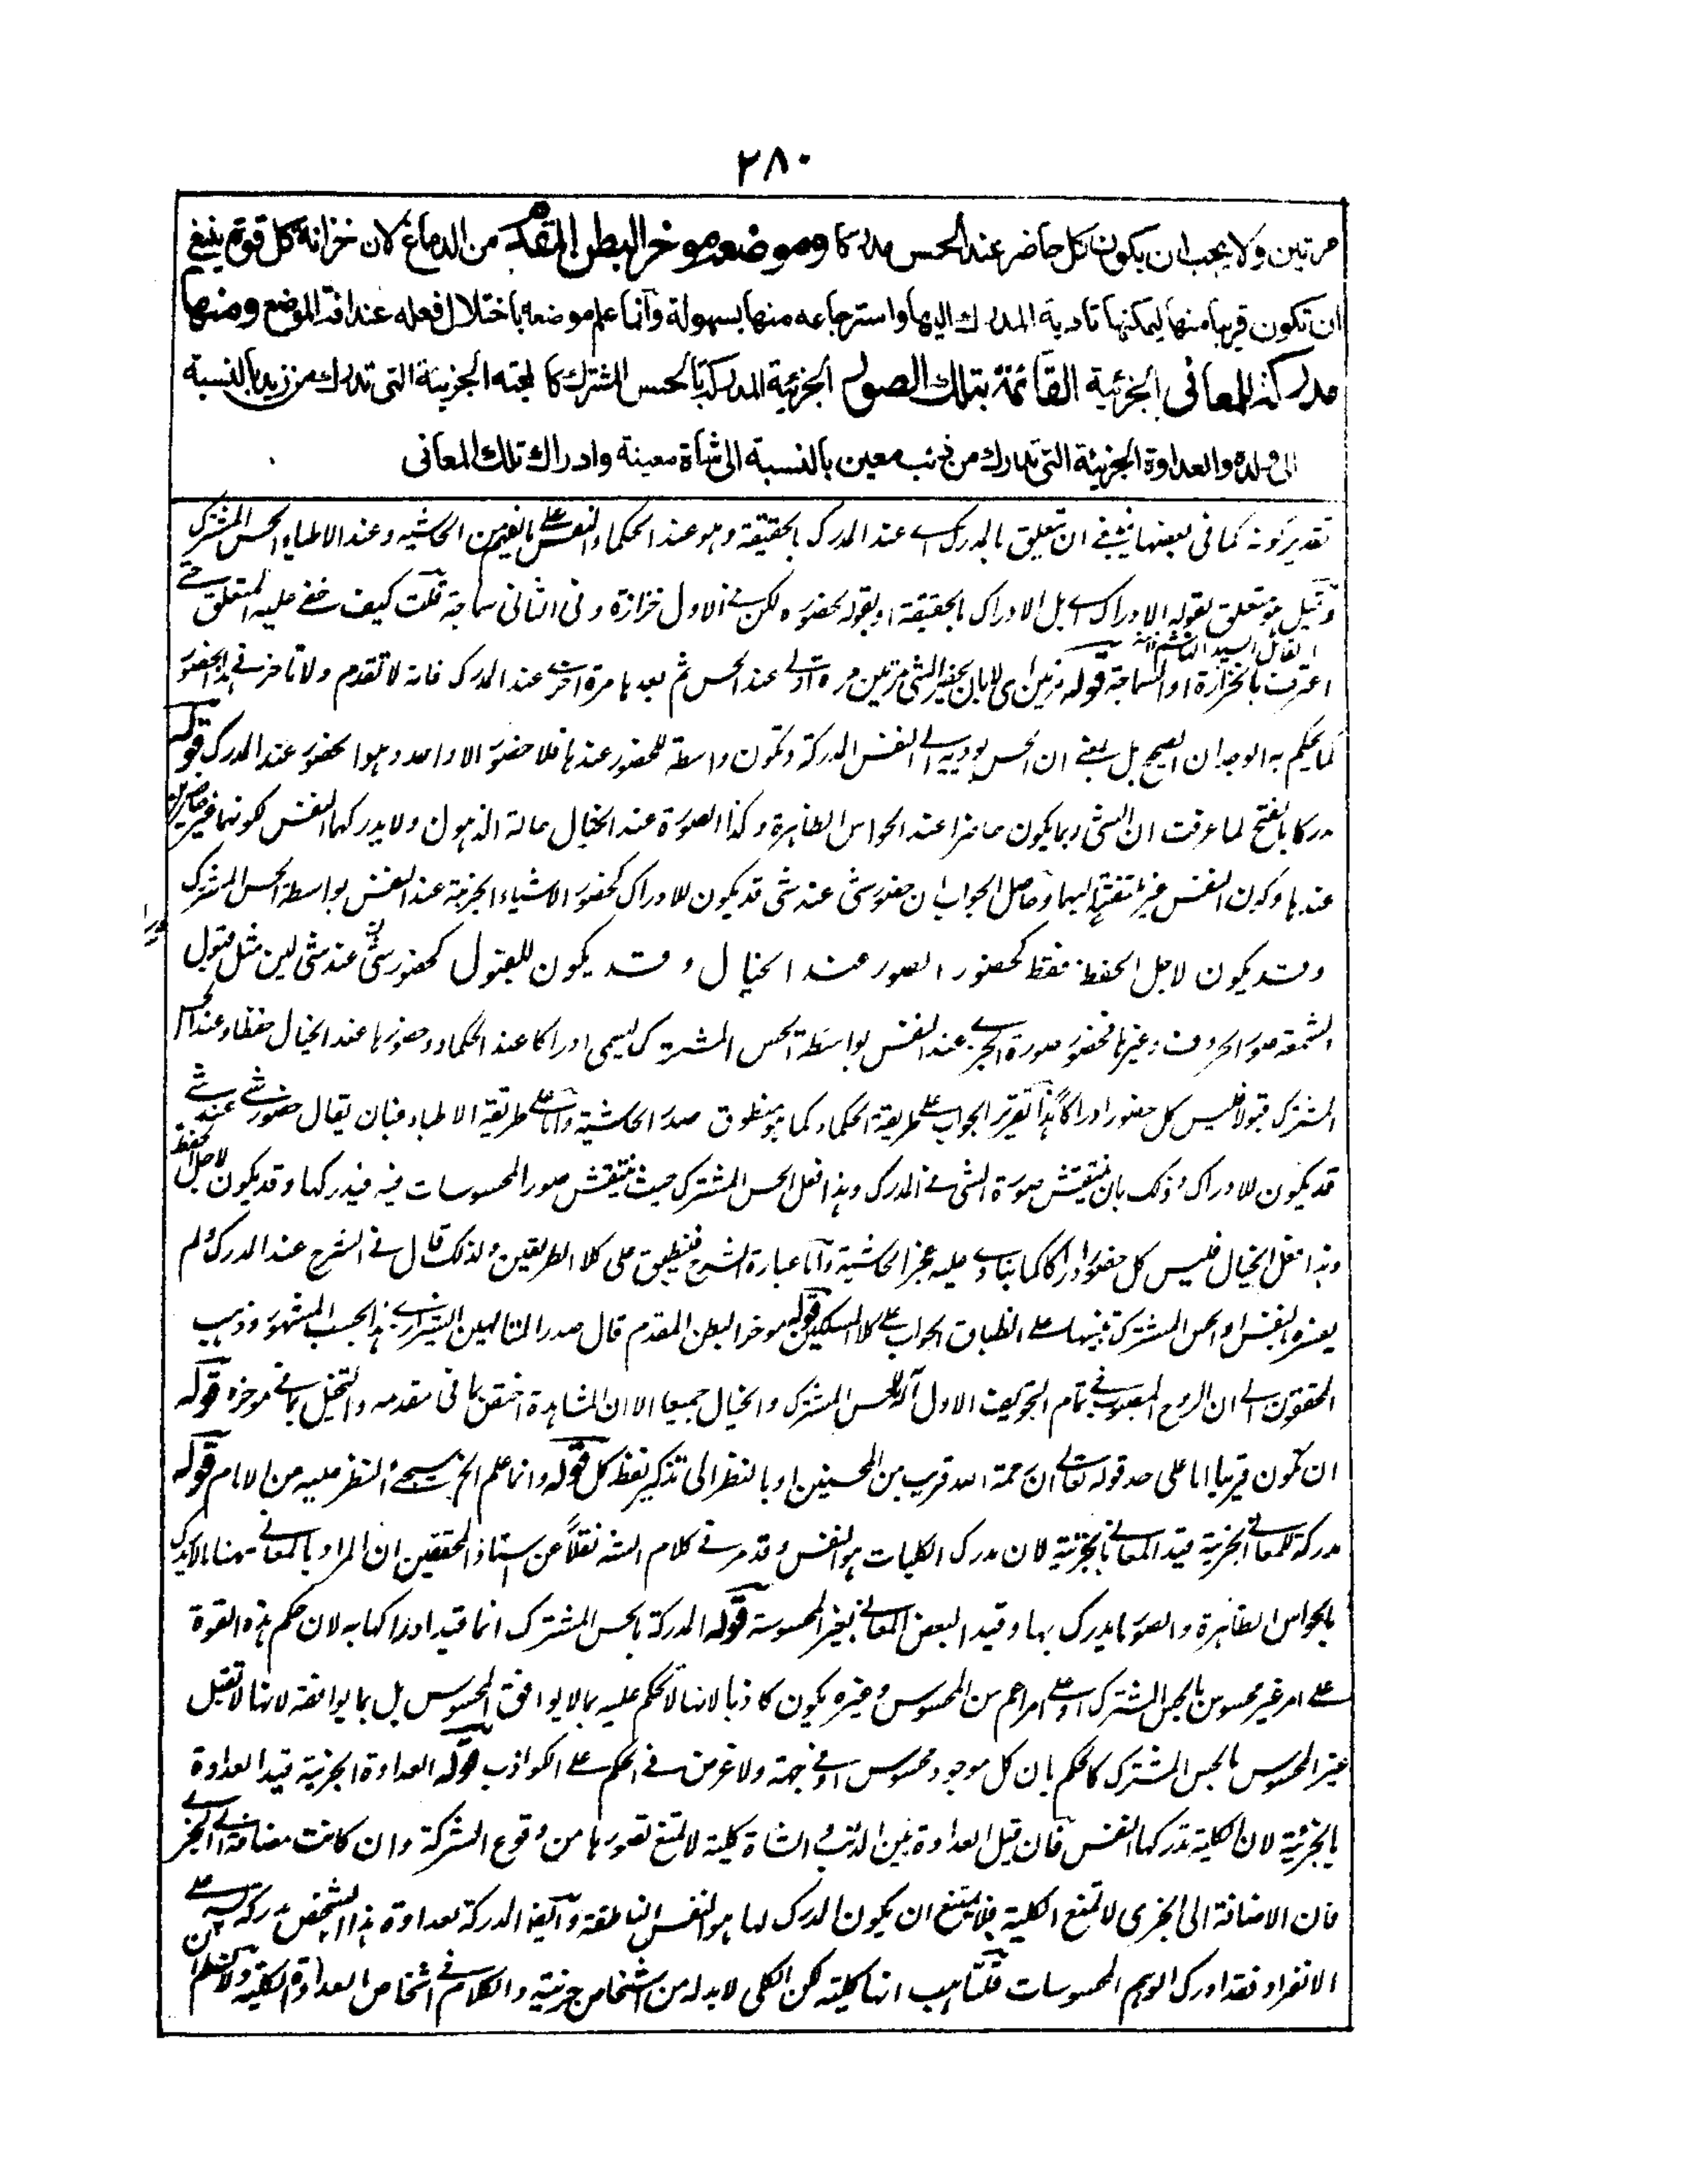 ٢٨٠
مرتين ولا يجب ان يكون كل حاضر عند الحس مدركا وموضعه موخر البطن المقدم من الدماغ لان خزانة كل قوة ينبغي
ان تكون قريبا منها ليمكنها تادية المدرك اليها واسترجاعه منها بسهولة وانما علم موضعه باختلال فعله عند افة الموضع ومنها
مدركة للمعاني الجزئية القائمة بتلك الصور الجزئية المدركة بالحس المشترك كالمحبة الجزئية التي تدرك من زيد بالنسبة
الى ولده والعداوة الجزئية التي تدرك من ذئب معين بالنسبة الى شاة معينة وادراك تلك المعاني
تقدير كونه كما في بعضها ينبغي ان يتعلق بالمدرك اے عند المدرك بالحقيقة وهو عند الحكماء النفس على ما يفهم من الحاشيه وعند الاطباء الحس المشترك
وقيل هو متعلق بقوله الادراك اے بل الادراك بالحقيقة او بقوله بحضوره لكن في الاول خزازة وفي الثاني سماجة قلت كيف خفي عليه المتعلق حتى
القائل السيد
اعترف بالخزازة او السماجة قوله مرتين اى لا بان يحضر الشئ مرتين مرة اولى عند الحس ثم بعدها مرة اخرى عند المدرك فانه لا تقدم ولا تاخر في هذا الحضور
كما يحكم به الوجدان الصحيح بل يعني ان الحس يوديه الى النفس المدركة وتكون واسطة للحضور عندها فلا حضور الا واحد وهو الحضور عند المدرك قوله
مدركا بالفتح لما عرفت ان الشئ ربما يكون حاضرا عند الحواس الظاهرة وكذا الصورة عند الخيال حالة الذهول ولا يدركها النفس لكونها غير حاضرين
عندها وكون النفس غير ملتفتة اليهما وحاصل الجواب ان حضور شئ عند شئ قد يكون للادراك كحضور الاشياء الجزئية عند النفس بواسطة الحس المشترك
وقد يكون لاجل الحفظ فقط كحضور الصور عند الخيال وقد يكون للقبول كحضور شئ عند شئ لين مثل قبول
الشمعة صور الحروف وغيرها فحضور صورة الجزئى عند النفس بواسطة الحس المشترك يسمى ادراكا عند الحكماء وحضورها عند الخيال حفظا وعند الحس
المشترك قبولا فليس كل حضور ادراكا هذا تقرير الجواب على طريقة الحكماء كما هو منطوق صدر الحاشية واما على طريقة الاطباء فبان يقال حضور شئ عند شئ
قد يكون للادراك وذلك بان ينتقش صورة الشئ في المدرك وهذا فعل الحس المشترك حيث ينتقش صور المحسوسات فيه فيدركها وقد يكون لاجل الحفظ
وهذا فعل الخيال فليس كل حضور ادراكا كما ينادى عليه عجز الحاشية واما عبارة الشرح فينطبق على كلا الطريقين ولذلك قال في الشرح عند المدرك ولم
يفسره بالنفس او الحس المشترك تنبيها على انطباق الجواب على كلا المسلكين قوله موخر البطن المقدم قال صدر المتالهين الشيرازى هذا بحسب المشهور وذهب
المحققون الى ان الروح المصبوب في تمام التجويف الاول آلة للحس المشترك والخيال جميعا الا ان المشاهدة اختص بما في مقدمه والتخيل بما في موخره قوله
ان تكون قريبا اما على حد قوله تعالى ان رحمة الله قريب من المحسنين او بالنظر الى تذكير لفظ كل قوله وانما علم الخ سيجئ النظر عليه من الامام قوله
مدركة للمعاني الجزئية قيد المعاني بالجزئية لان مدرك الكليات هو النفس وقد مر في كلام الشه نقلاً عن استاذ المحققين ان المراد بالمعاني ههنا ما لا يدرك
بالحواس الظاهرة والصور ما يدرك بها وقيد البعض المعاني بغير المحسوسة قوله المدركة بالحس المشترك انما قيد ادراكها به لان حكم هذه القوة
على امر غير محسوس بالحس المشترك او على امر اعم من المحسوس وغيره يكون كاذبا لانها لا تحكم عليه بما لا يوافق المحسوس بل بما يوافقه لانها لا تقبل
غير المحسوس بالحس المشترك كالحكم بان كل موجود محسوس او في جهة ولا غرض في الحكم على الكواذب قوله العداوة الجزئية قيد العداوة
بالجزئية لان الكلية تدركها النفس فان قيل العداوة بين الذئب والشاة كلية لا تمنع تصورها من وقوع الشركة وان كانت مضافة الى الجزئى
فان الاضافة الى الجزئى لا تمنع الكلية فلا يمتنع ان يكون المدرك لها هو النفس الناطقة وايضا المدركة لعداوة هذا الشخص مدركة له على
الانفراد فقد ادرك الوهم المحسوسات قلنا هب انها كلية لكن الكلى لا بد له من اشخاص جزئية والكلام في اشخاص العداوة الكلية ولا نسلم ان